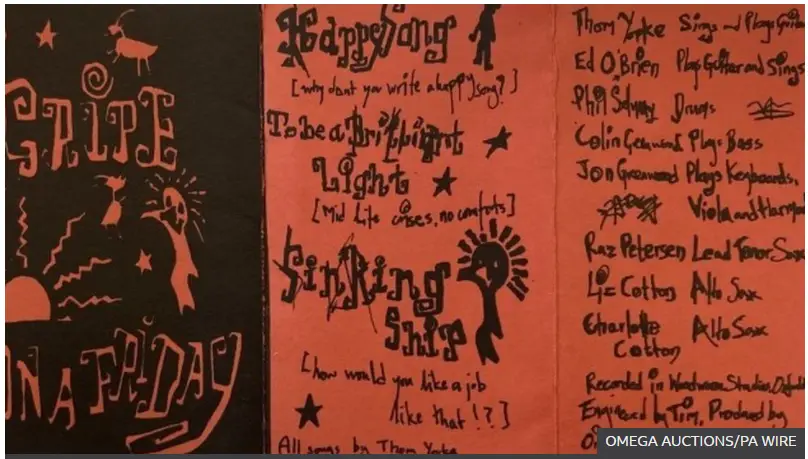 GRIPE
ON A FRIDAY
Happy Song
[why dont you write a happy song?]
To be a Brilliant
Light
[Mid Life crises, no comforts]
Sinking
Ship
[how would you like a job
like that!?]
All songs by Thom Yorke
Thom Yorke Sings and Plays Guitar
Ed O'Brien Plays Guitar and Sings
Phil Selway Drums
Colin Greenwood Plays Bass
Jon Greenwood Plays Keyboards,
Viola and Harmon
Raz Petersen Lead Tenor Sax
Liz Cotton Alto Sax
Charlotte Alto Sax
Cotton
Recorded in Woodworm Studios, Oxfords
Engineered by Tim, Produced by
OMEGA AUCTIONS/PA WIRE